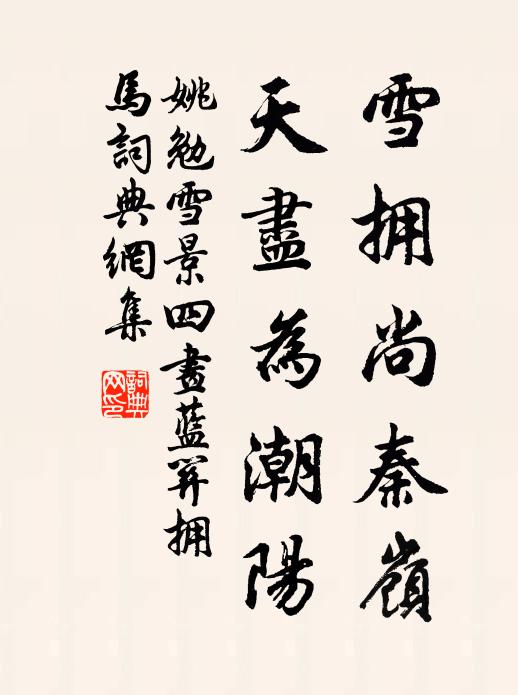 雪拥尚秦嶺
天盡為潮陽
姚勉雪景四畫藍関拥
馬詞典網集
詞典网印